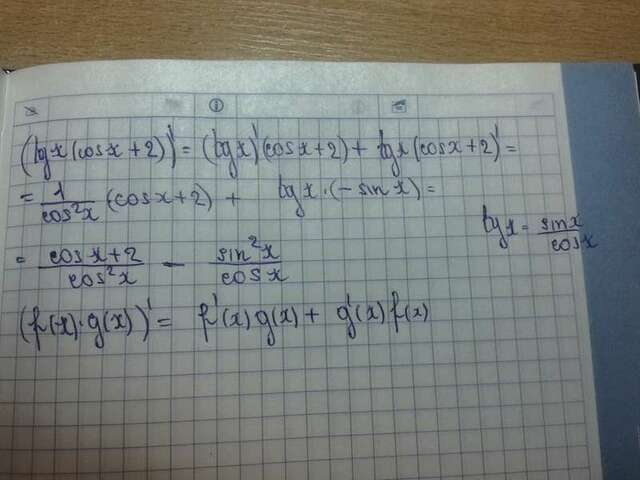 (tg x (cos x + 2))' = (tg x)' (cos x + 2) + tg x (cos x + 2)' =
= 1/cos²x (cos x + 2) + tg x · (− sin x) =
tg x = sin x/cos x
= cos x + 2/cos²x − sin²x/cos x
(f(x) · g(x))' = f'(x) g(x) + g'(x) f(x)